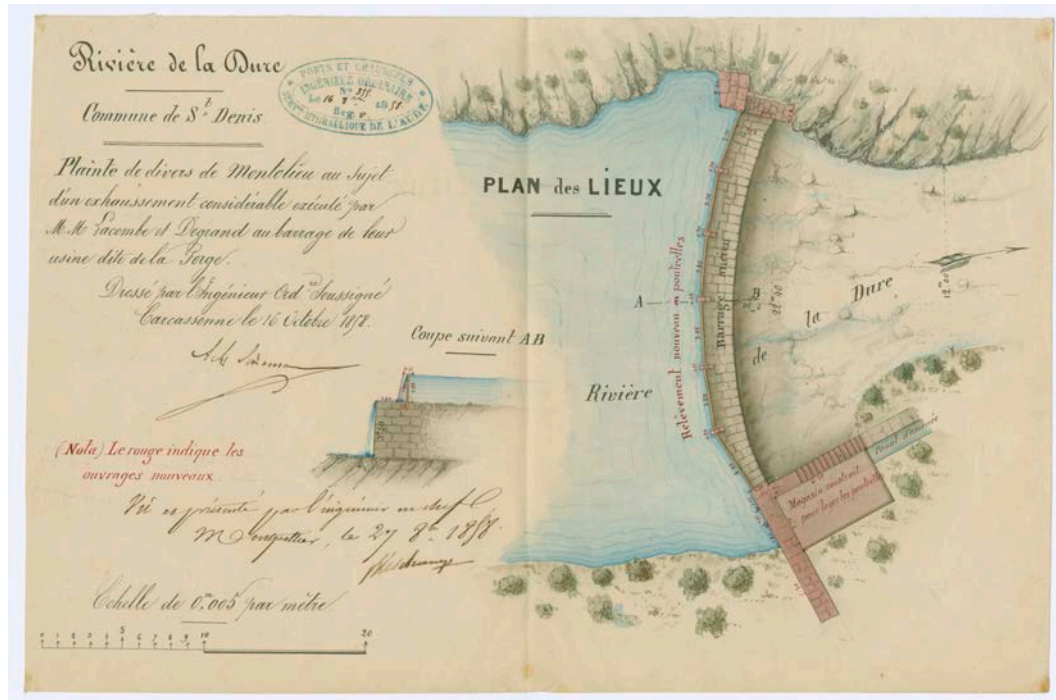 Rivière de la Dure
Commune de St Denis
PONTS ET CHAUSSÉES
INGÉNIEUR ORDINAIRE
No 535
Le 16 1858
Reg
HYDRAULIQUE DE L'AUDE
Plainte de divers de Montolieu au Sujet
d'un exhaussement considérable exécuté par
M.M. Lacombe et Degrand au barrage de leur
usine dite de la Forge.
Dressé par l'Ingénieur Ord.re Soussigné
Carcassonne le 16 Octobre 1858.
Coupe suivant AB
(Nota) Le rouge indique les
ouvrages nouveaux
Vu et présenté par l'ingénieur en chef
Montpellier, le 27 8bre 1858.
Echelle de 0m,005 par mètre
0 1 2 3 4 5 6 7 8 9 10 20
PLAN des LIEUX
Relèvement nouveau en poutrelles
Barrage ancien
A
B
22m,40
12m,00
Rivière
de
la
Dure
Canal d'amenée
Magasin construit
pour loger les poutrelles